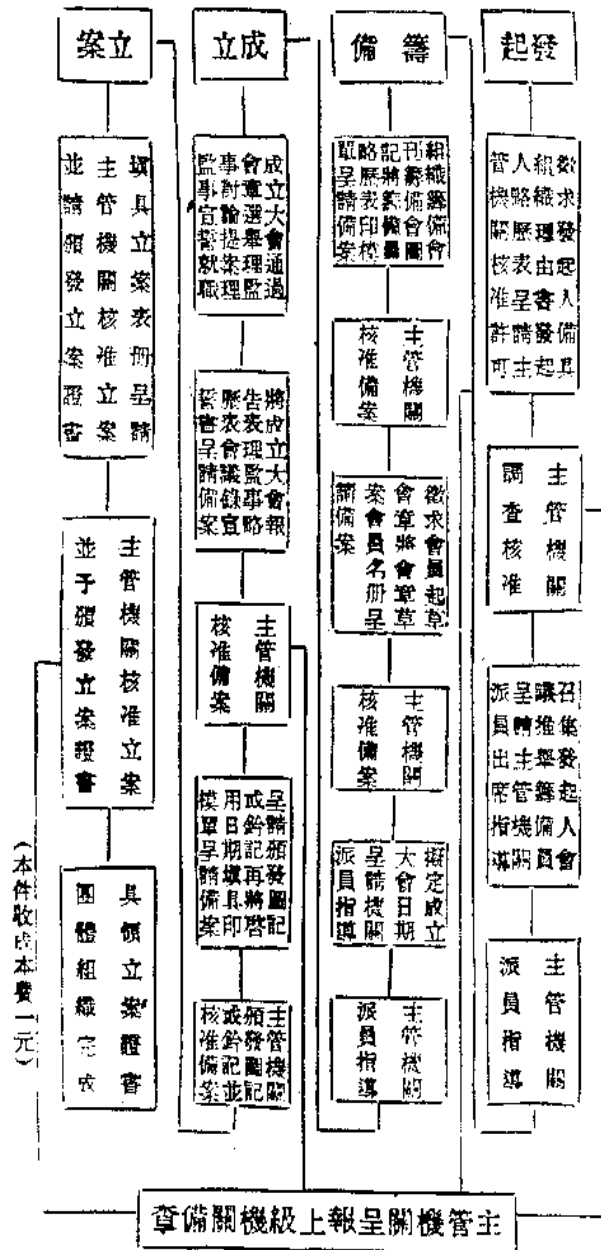 發起
徵求發起人備具
組織理由書發起
人略歷表呈請主
管機關核准許可
主管機關
調查核准
召集發起人會
議推舉籌備員
呈請主管機關
派員出席指導
主管機關
派員指導
籌備
組織籌備會
刊籌備會圖
記將籌備員
略歷表印模
單呈請備案
主管機關
核准備案
徵求會員起草
會章將會章草
案會員名册呈
請備案
主管機關
核准備案
擬定成立
大會日期
呈請機關
派員指導
主管機關
派員指導
成立
成立大會通過
會章選舉理監
事討論提案理
監事宣誓就職
將成立大會報
告表理監事略
歷表會議錄宣
誓書呈請備案
主管機關
核准備案
呈請頒發圖記
或鈐記再將啓
用日期填具印
模單呈請備案
主管機關
頒發圖記
或鈐記並
核准備案
立案
填具立案表册呈請
主管機關核准立案
並請頒發立案證書
主管機關核准立案
並予頒發立案證書
具領立案證書
團體組織完成
（本件收成本費一元）
主管機關呈報上級機關備查